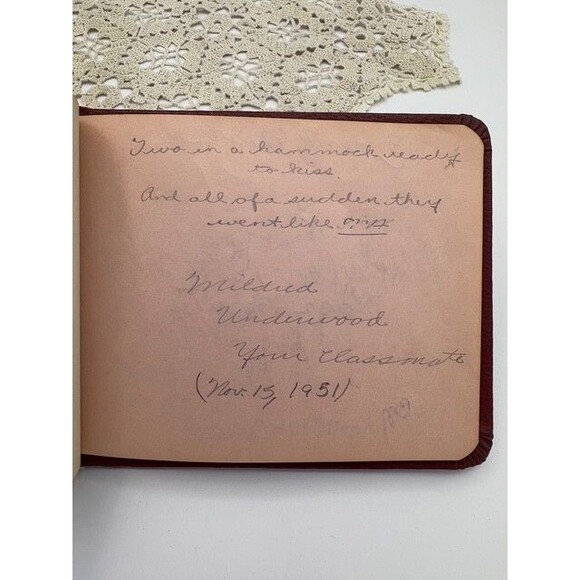 Two in a hammock ready
to kiss.
And all of a sudden they
went like this
Mildred
Underwood
Your Classmate
(Nov. 15, 1951)